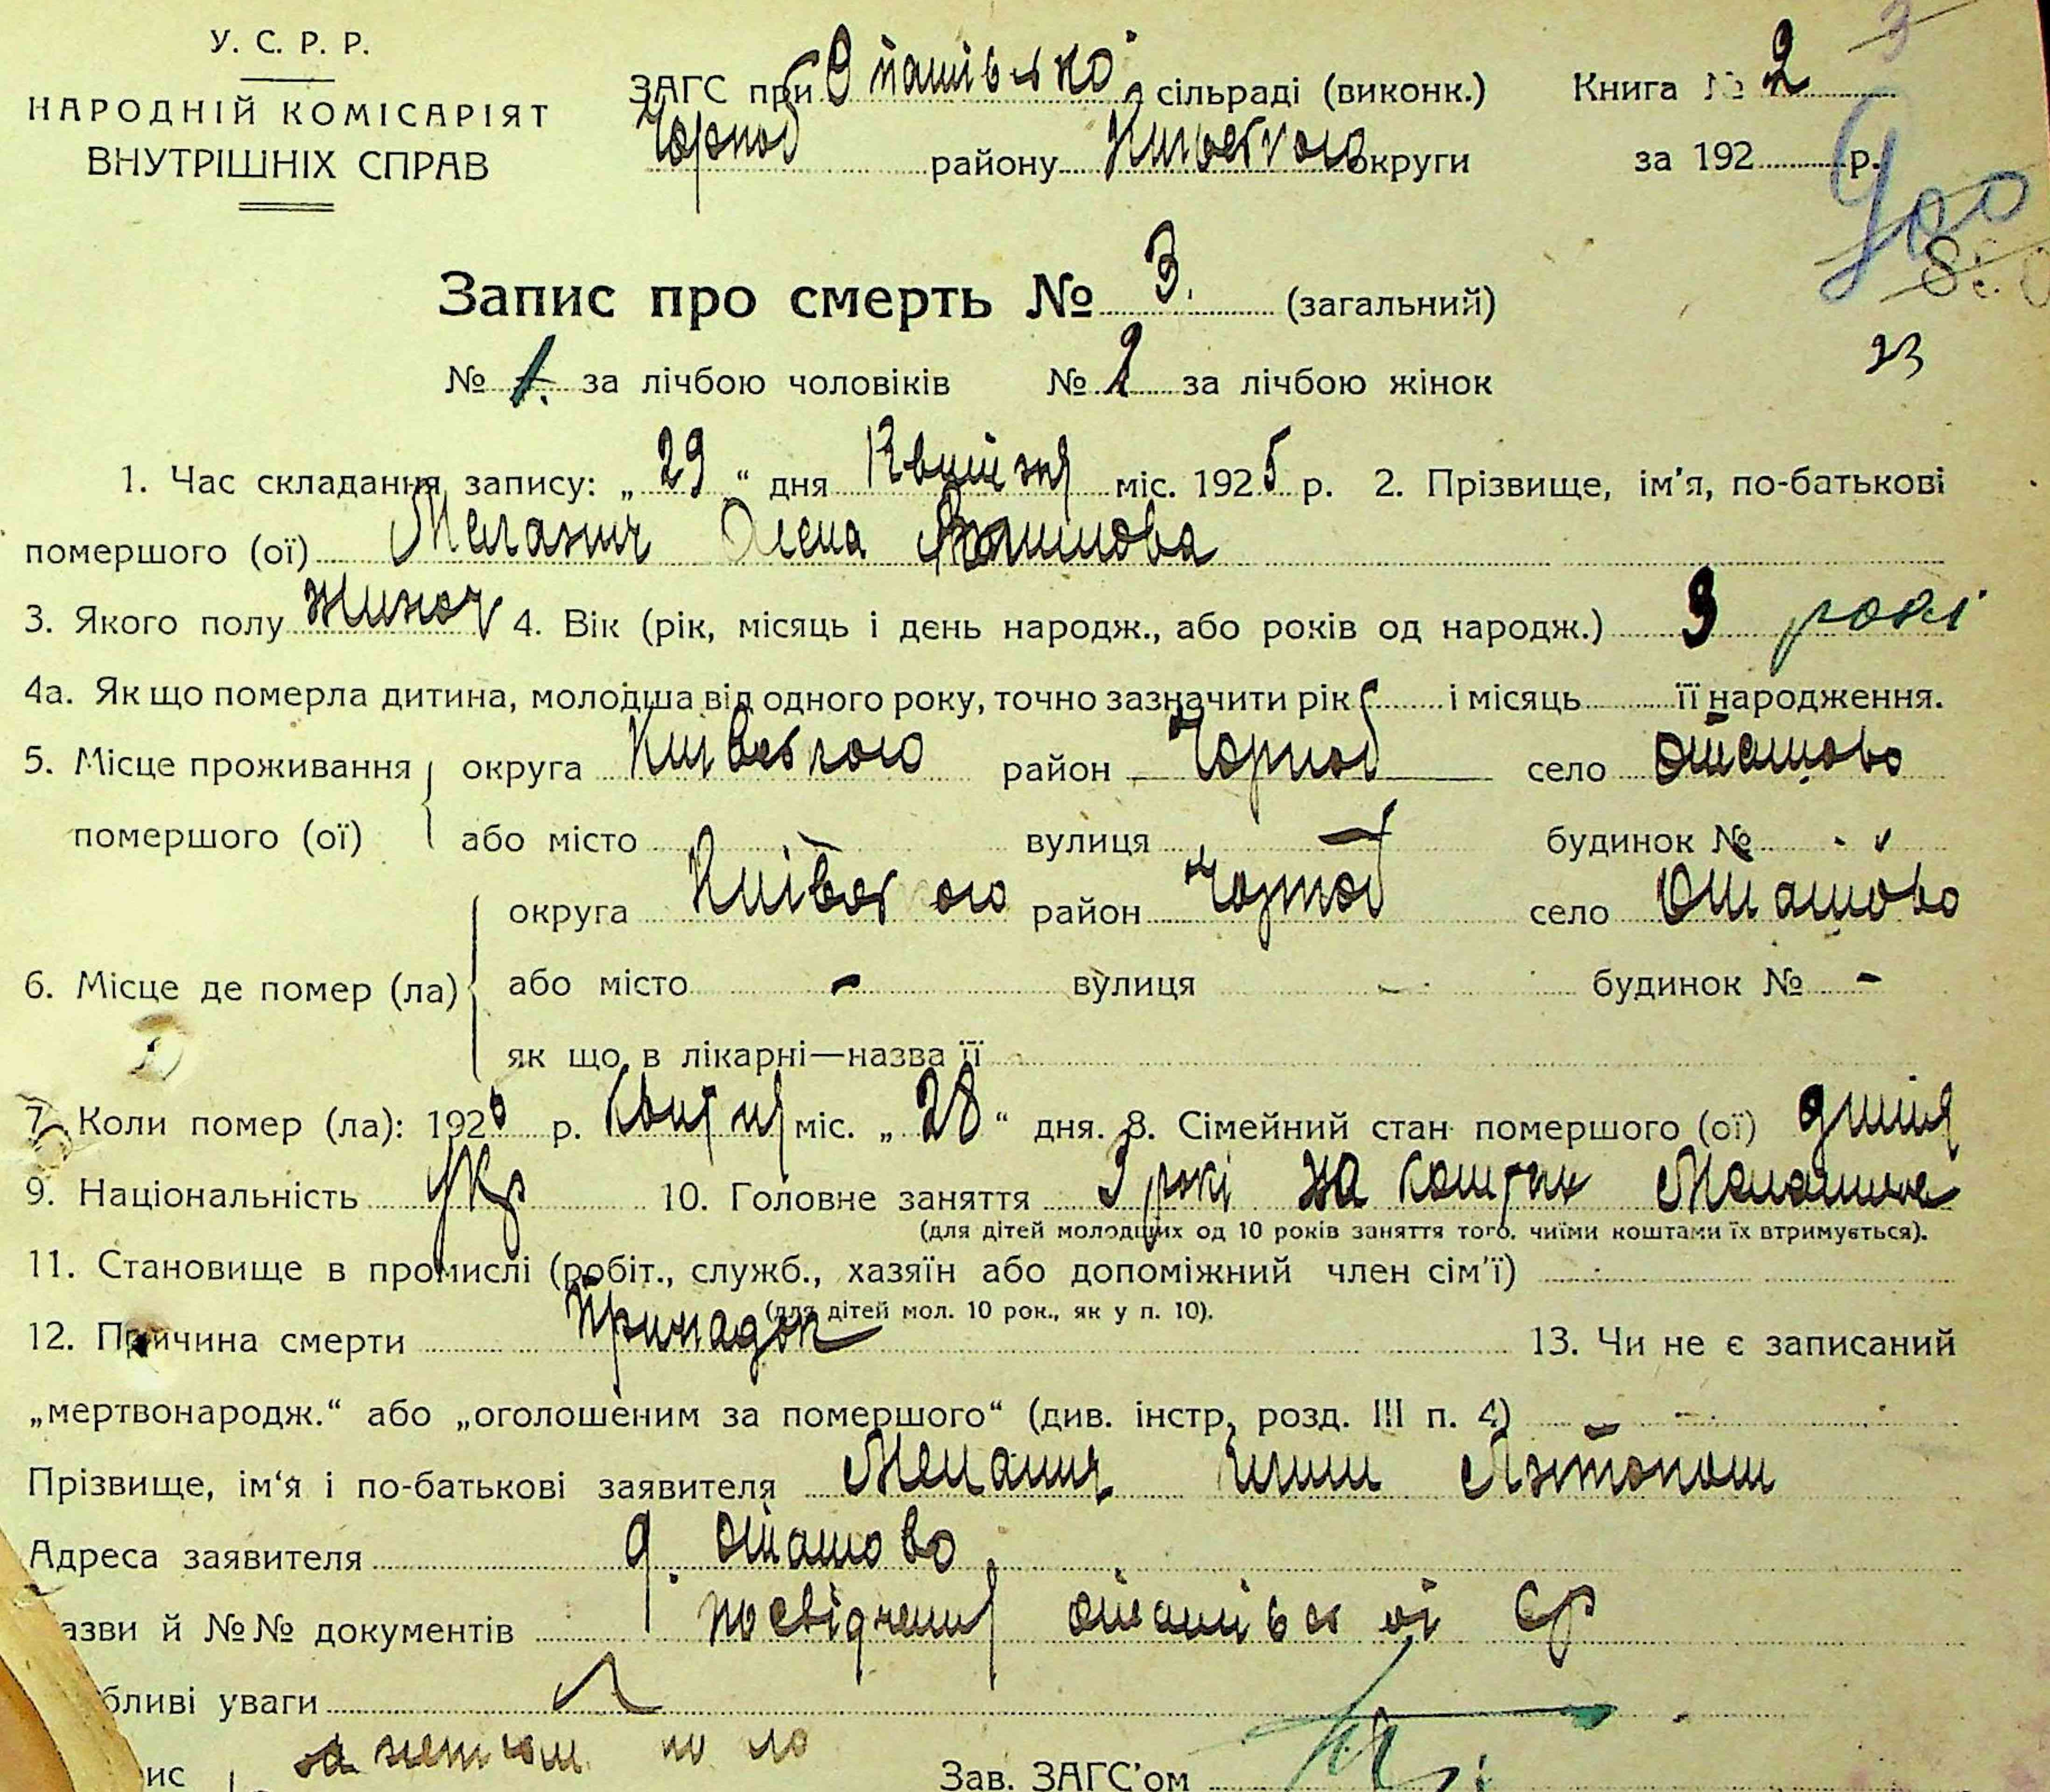 У. С. Р. Р.
НАРОДНІЙ КОМІСАРІЯТ
ВНУТРІШНІХ СПРАВ
ЗАГС при сільраді (виконк.)
Чорноб району Київського округи
Книга № 2
за 192 р.
Запис про смерть № 3. (загальний)
№ 1. за лічбою чоловіків № 2 за лічбою жінок
23
1. Час складання запису: „ 29 “ дня Квитня міс. 1925 р. 2. Прізвище, ім'я, по-батькові
помершого (ої) Олена
3. Якого полу жиноч 4. Вік (рік, місяць і день народж., або років од народж.) 3 рокі
4а. Як що померла дитина, молодша від одного року, точно зазначити рік і місяць її народження.
5. Місце проживання помершого (ої) округа Київського район Чорноб село Оташово
або місто - вулиця - будинок №
6. Місце де помер (ла) округа Київського район Чорноб село Оташово
або місто - вулиця - будинок № -
як що в лікарні—назва її
7. Коли помер (ла): 1925 р. Квитня міс. „ 28 “ дня. 8. Сімейний стан помершого (ої) дитя
9. Національність Укр 10. Головне заняття 3 рокі на коштах
(для дітей молодщих од 10 років заняття того, чиїми коштами їх втримується).
11. Становище в промислі (робіт., служб., хазяїн або допоміжний член сім'ї)
(для дітей мол. 10 рок., як у п. 10).
12. Причина смерти Припадок 13. Чи не є записаний
„мертвонародж.“ або „оголошеним за помершого“ (див. інстр, розд. III п. 4) -
Прізвище, ім'я і по-батькові заявителя
Адреса заявителя д. Оташово
азви й №№ документів посвідчення Оташівськоі ср
бливі уваги
ис
Зав. ЗАГС'ом